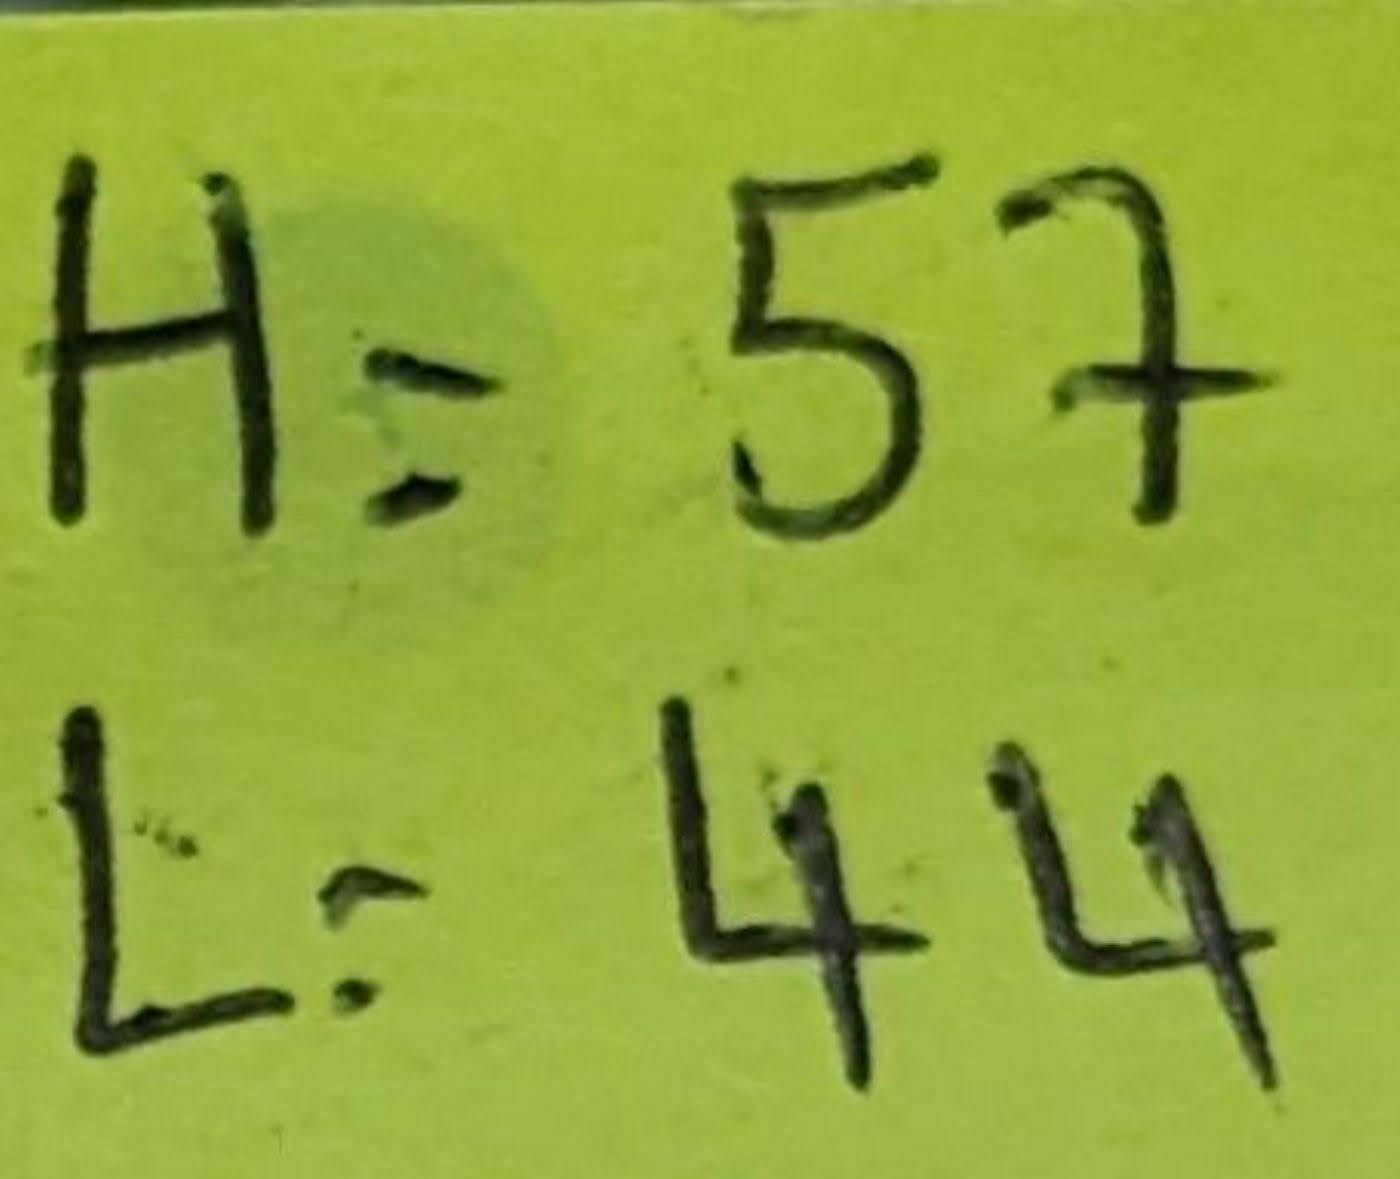 H: 57
L: 44